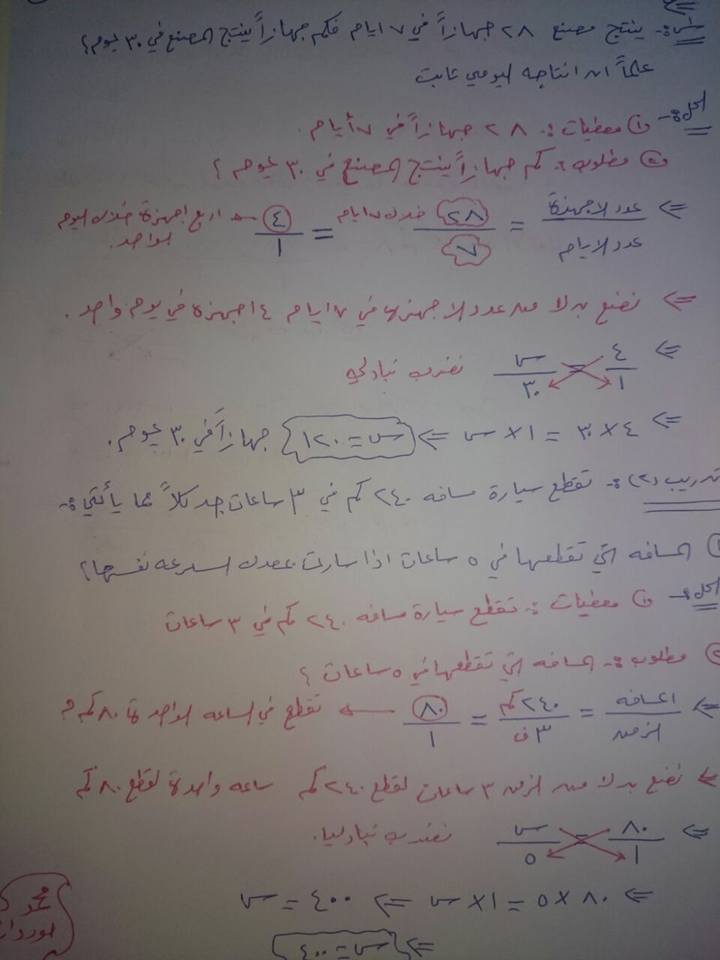 س:- ينتج مصنع ٢٨ جهازاً في ٧ ايام فكم جهازاً ينتج المصنع في ٣٠ يوم؟
علماً ان انتاجه اليومي ثابت
الحل:- ① معطيات:- ٢٨ جهازاً في ٧ أيام.
② مطلوب:- كم جهازاً ينتج المصنع في ٣٠ يوم؟
⇐ عدد الاجهزة / عدد الايام = ٢٨ / ٧ خلال ٧ ايام = ٤ / ١ ← اربع اجهزة خلال اليوم الواحد.
⇐ نضع بدلا من عدد الاجهزة في ٧ ايام ٤ اجهزة في يوم واحد.
⇐ ٤ / ١ = س / ٣٠ نضرب تبادلي
⇐ ٤ × ٣٠ = ١ × س ⇐ س = ١٢٠ جهازاً في ٣٠ يوم.
تدريب (٢):- تقطع سيارة مسافه ٢٤٠ كم في ٣ ساعات جد كلاً مما يأتي:-
① المسافه التي تقطعها في ٥ ساعات اذا سارت بمعدل السرعه نفسها؟
الحل:- ① معطيات:- تقطع سيارة مسافه ٢٤٠ كم في ٣ ساعات
② مطلوب:- المسافه التي تقطعها في ٥ ساعات؟
⇐ المسافه / الزمن = ٢٤٠ كم / ٣ = ٨٠ / ١ ← تقطع في الساعه الواحدة ٨٠ كم
⇐ نضع بدلا من الزمن ٣ ساعات لقطع ٢٤٠ كم ساعه واحدة لقطع ٨٠ كم
⇐ ٨٠ / ١ = س / ٥ نضرب تبادليا.
⇐ ٨٠ × ٥ = ١ × س ⇐ ٤٠٠ = س
⇐ س = ٤٠٠
محمد